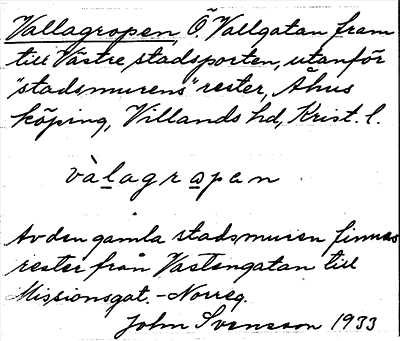 Vallagropen, Ö. Vallgatan fram
till Västre stadsporten, utanför
"stadsmurens" rester, Åhus
köping, Villands hd, Krist. l.
vàlagrapen
Av den gamla stadsmuren finnes
rester från Västengatan till
Missionsgat. - Norreg.
John Svensson 1933